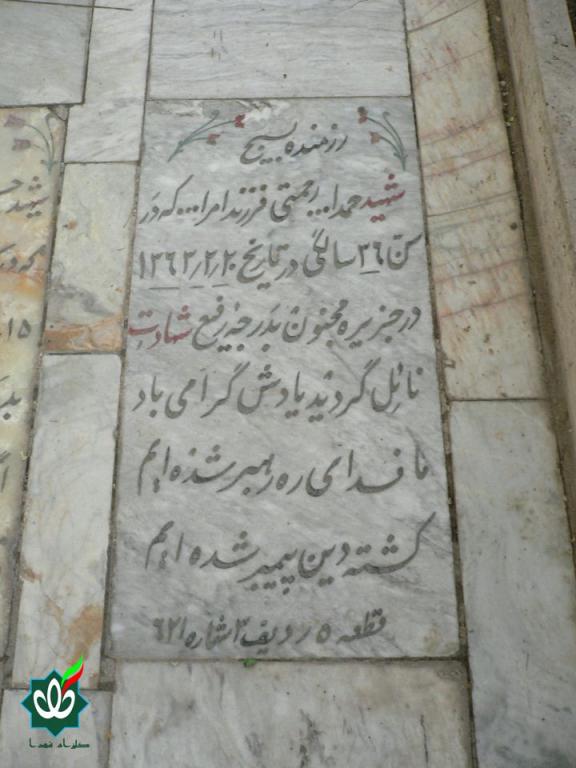 رزمنده بسیج
شهید حمدا... رحمتی فرزند امرا... که در
سن ۳۶ سالگی در تاریخ ۱۳۶۳/۲/۲۰
در جزیره مجنون بدرجه رفیع شهادت
نائل گردید یادش گرامی باد
ما فدای ره رهبر شده ایم
کشته دین پیمبر شده ایم
قطعه ۵ ردیف ۳ شماره ۶۲۱
شهید
که در
۱۵
گلزار شهدا